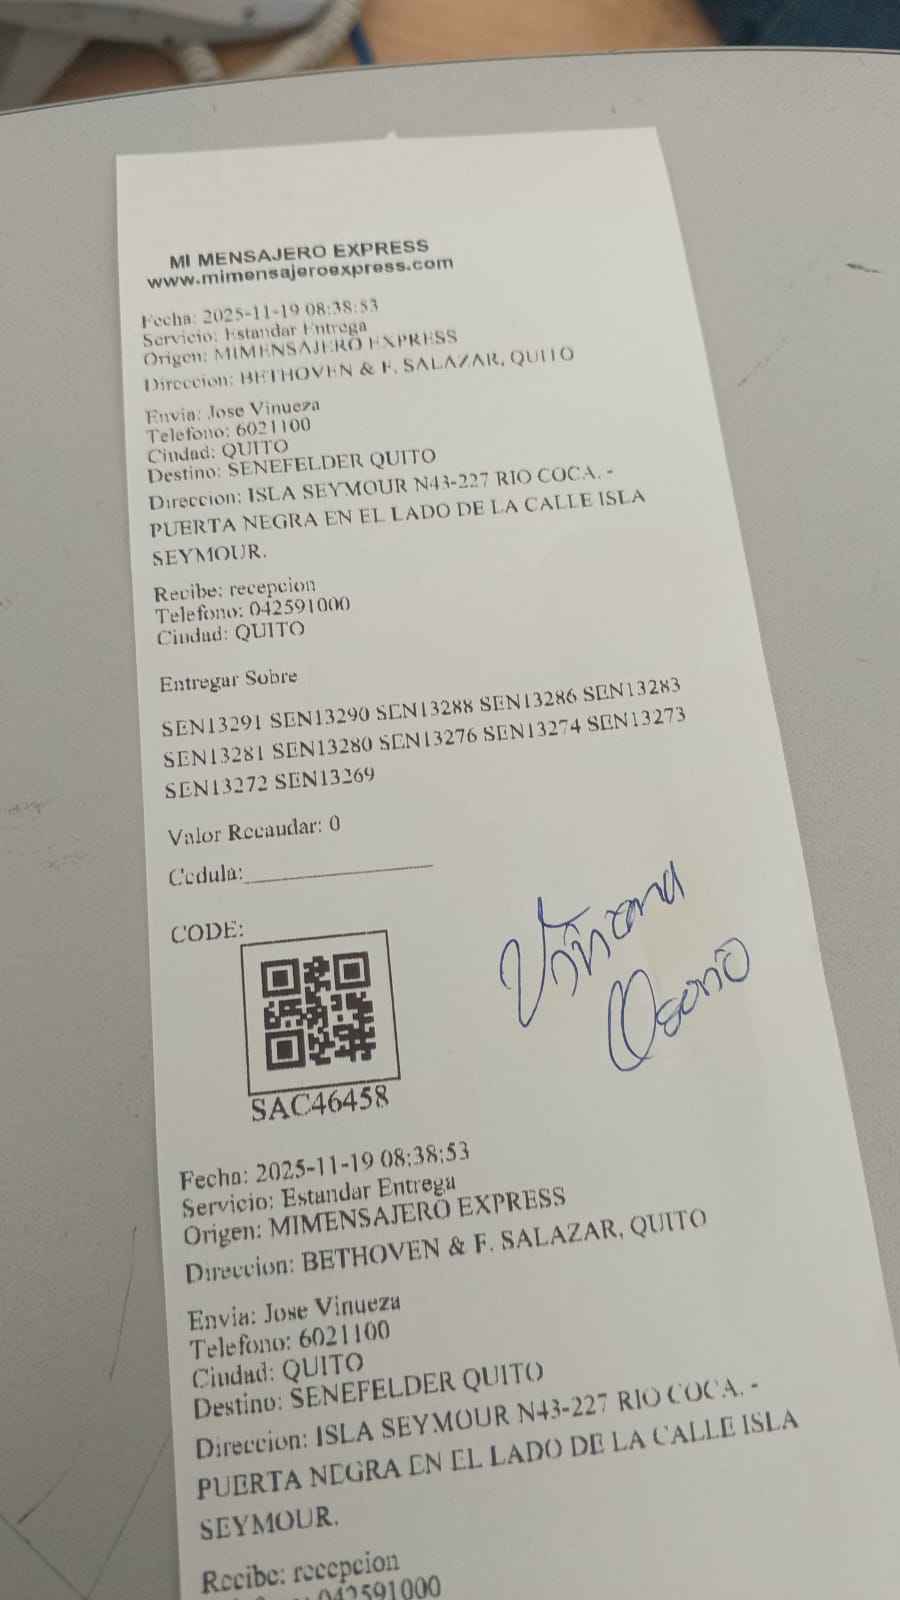 MI MENSAJERO EXPRESS
www.mimensajeroexpress.com
Fecha: 2025-11-19 08:38:53
Servicio: Estandar Entrega
Origen: MIMENSAJERO EXPRESS
Direccion: BETHOVEN & F. SALAZAR, QUITO
Envia: Jose Vinueza
Telefono: 6021100
Ciudad: QUITO
Destino: SENEFELDER QUITO
Direccion: ISLA SEYMOUR N43-227 RIO COCA. -
PUERTA NEGRA EN EL LADO DE LA CALLE ISLA
SEYMOUR.
Recibe: recepcion
Telefono: 042591000
Ciudad: QUITO
Entregar Sobre
SEN13291 SEN13290 SEN13288 SEN13286 SEN13283
SEN13281 SEN13280 SEN13276 SEN13274 SEN13273
SEN13272 SEN13269
Valor Recaudar: 0
Cedula:
CODE:
Osorio
SAC46458
Fecha: 2025-11-19 08:38:53
Servicio: Estandar Entrega
Origen: MIMENSAJERO EXPRESS
Direccion: BETHOVEN & F. SALAZAR, QUITO
Envia: Jose Vinueza
Telefono: 6021100
Ciudad: QUITO
Destino: SENEFELDER QUITO
Direccion: ISLA SEYMOUR N43-227 RIO COCA. -
PUERTA NEGRA EN EL LADO DE LA CALLE ISLA
SEYMOUR.
Recibe: recepcion
042591000